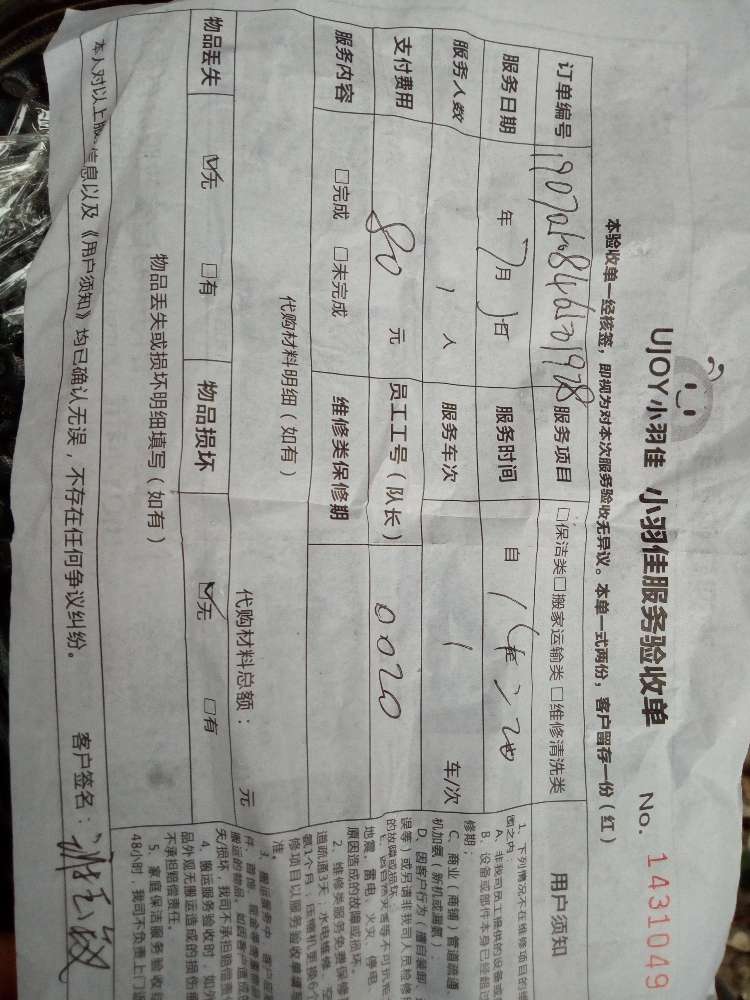 UJOY小羽佳 小羽佳服务验收单 No. 1431049
本验收单一经核签，即视为对本次服务验收无异议。本单一式两份，客户留存一份（红）
订单编号 服务项目 □保洁类□搬家运输类□维修清洗类 用户须知
服务日期 年 7月 日 服务时间 自
服务人数 1 人 服务车次 1 车/次
支付费用 80 元 员工工号（队长） 0020
服务内容 □完成 □未完成 维修类保修期
代购材料明细（如有） 代购材料总额： 元
物品丢失 ☑无 □有 物品损坏 ☑无 □有
物品丢失或损坏明细填写（如有）
本人对以上服 信息以及《用户须知》均已确认无误，不存在任何争议纠纷。 客户签名：
1、下列情况不在维修项目的维
A、非我司员工提供的设备或
B、设备或部件本身已经超过
修期；
C、商业（商铺）管道疏通
机加氨（新机或漏氨）
D、因客户行为（擅自装卸
误等）或另请非我司人员检修
的故障或损坏
地震、雷电、火灾、停电
原因造成的故障或损坏。
2、维修类服务免费保修
道疏通3天；水电维修、空
修项目以服务验收单填写
准。
3、搬运服务中，客户应
失/损坏，我司不承担赔偿责
4、搬运服务验收时，如外
品外观无搬运造成的损伤痕
不承担赔偿责任。
5、家庭保洁服务验收
48小时，我司不负责上门